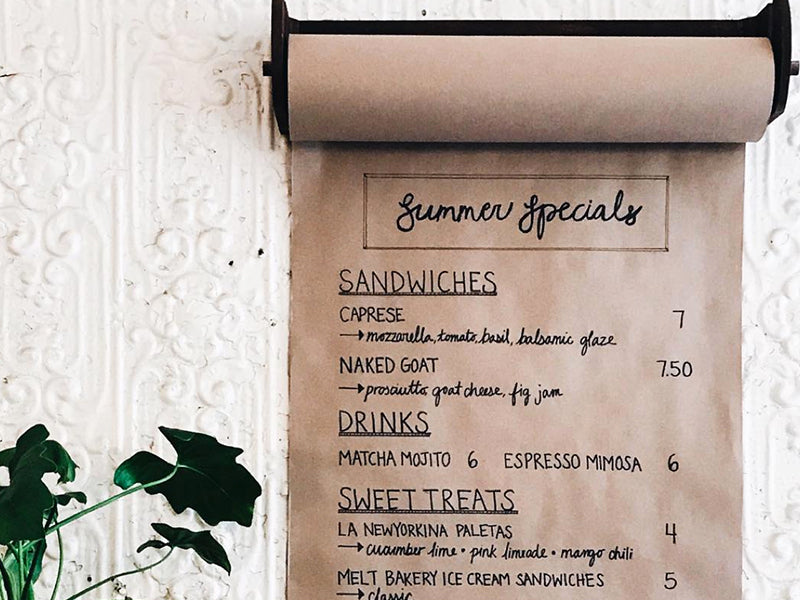 Summer Specials
SANDWICHES
CAPRESE 7
→ mozzarella, tomato, basil, balsamic glaze
NAKED GOAT 7.50
→ prosciutto, goat cheese, fig jam
DRINKS
MATCHA MOJITO 6 ESPRESSO MIMOSA 6
SWEET TREATS
LA NEWYORKINA PALETAS 4
→ cucumber lime • pink limeade • mango chili
MELT BAKERY ICE CREAM SANDWICHES 5
→ classic